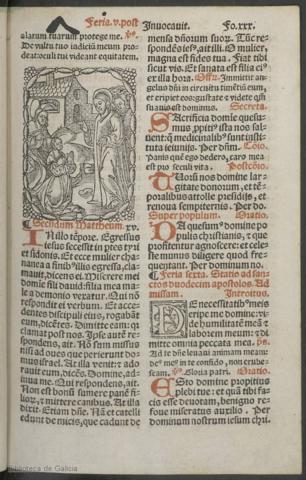 Feria.v.post Inuocauit. Fo.xxx.
alarum tuarum protege me. ℣s.
De vultu tuo iudiciũ meum pro
deat: oculi tui videant equitatem.
Secũdum Mattheum. xv.
IN illo tẽpore. Egressus
iesus secessit in ptes tyri
et sidonis. Et ecce mulier cha
nanea a finib⁹ illis egressa, cla-
mauit, dicens ei. Miserere mei
dñe fili dauid: filia mea ma
le a demonio vexatur. Qui nõ
respondit ei verbum. Et acce-
dentes discipuli eius, rogabãt
eum, dicẽtes. Dimitte eam: qr
clamat post nos. Ipse autẽ respõ
dens, ait. Nõ sum missus
nisi ad oues que perierunt do-
mus israel. At illa venit: ⁊ ado
rauit eum, dicẽs. Domine, ad-
iuua me. Qui respondens, ait.
Non est bonũ sumere panẽ fi-
lioꝝ, ⁊ mittere canibus. At illa
dixit. Etiam dñe. Nã et catelli
edunt de micis, que cadunt de
mensa dñorum suoꝝ. Tũc re-
spondẽs iesꝰ, ait illi. O mulier,
magna est fides tua. Fiat tibi
sicut vis. Et sanata est filia ei⁹
ex illa hora. Offr̃. Immittit an-
gelus dñi in circuitu timẽtiũ eum,
et eripiet eos: gustate ⁊ videte qm̃
suauis est dominus. Secreta.
SAcrificia domĩe quesu-
mus ppitiꝰ ista nos sal-
uent: q̃ medicinalibꝰ sunt insti-
tuta ieiuniis. Per dñm. Cõio.
Panis quẽ ego dedero, caro mea
est pro seculi vita. Postcõio.
TUorũ nos domine lar-
gitate donorum, et tẽ-
poralibus attolle presidijs, et
renoua sempiternis. Per do.
Super populum. Oratio.
DA quesum⁹ domine po
pulis christianis, ⁊ que
profitentur agnoscere: et cele-
ste munus diligere quod fre-
quentant. Per dominum no.
Feria sexta. Statio ad san-
ctos duodecim apostolos. Ad
missam. Introitus.
DE necessitatib⁹ meis
eripe me domine: vi-
de humilitatẽ meã ⁊
laborem meum: ⁊ di
mitte omnia peccata mea. ps.
Ad te dñe leuaui animam meam:
de⁹ me⁹ in te confido, non erube-
scam. ℣s. Gloria patri. Oratio.
ESto domine propitius
plebi tue: et quã tibi fa-
cis esse deuotam, benigno re-
foue miseratus auxilio. Per
dominum nostrum iesum chri.
Biblioteca de Galicia